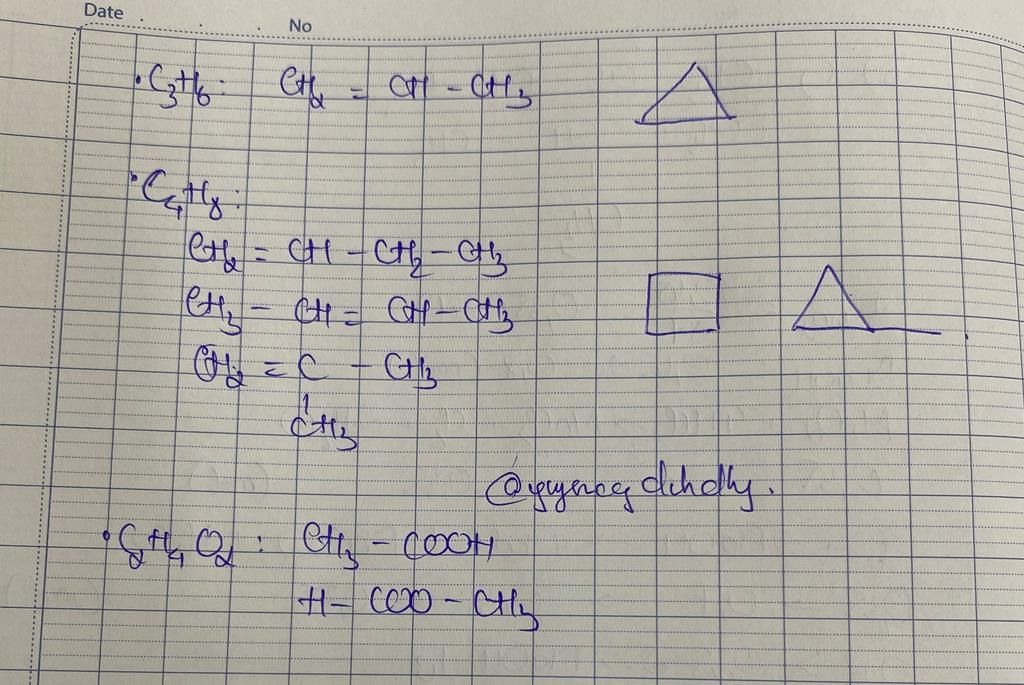 Date . . . No
• C₃H₆ : CH₂ = CH - CH₃
• C₄H₈ :
CH₂ = CH - CH₂ - CH₃
CH₃ - CH = CH - CH₃
CH₂ = C - CH₃
CH₃
• C₂H₄O₂ : CH₃ - COOH
H - COO - CH₃